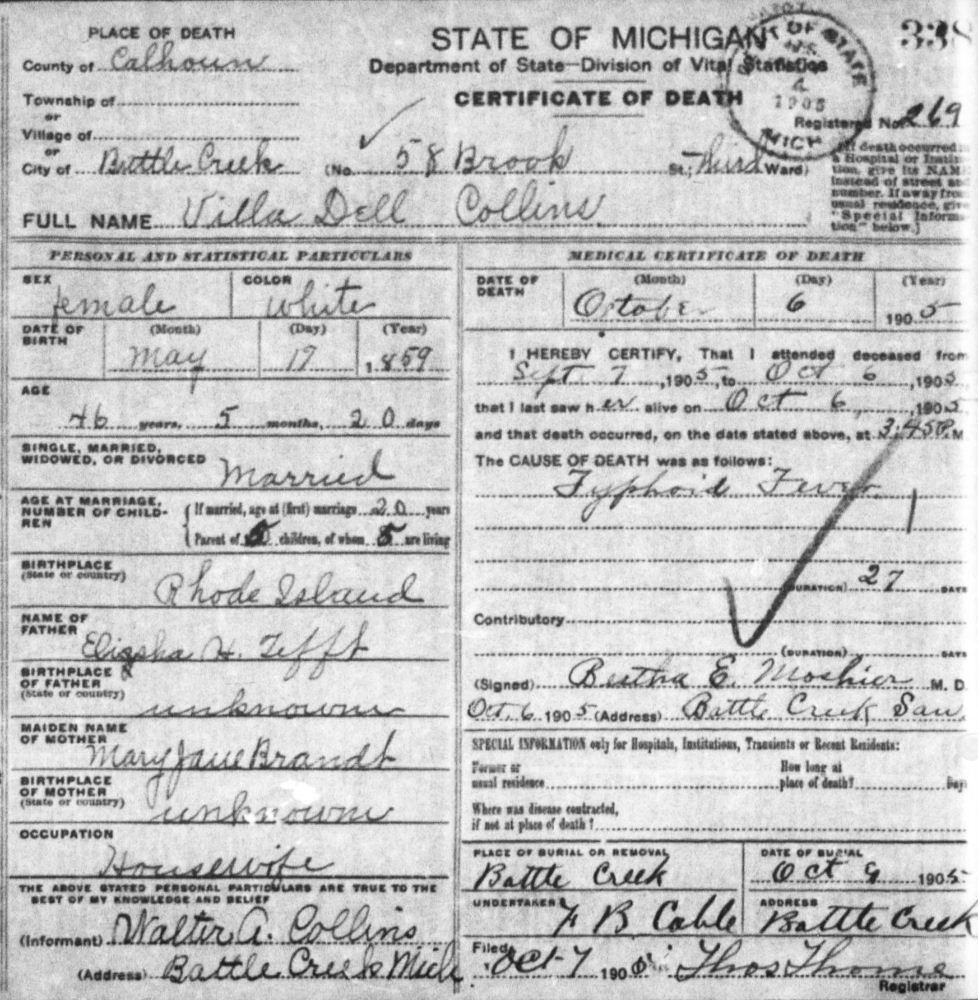 PLACE OF DEATH
County of Calhoun
Township of
or
Village of
or
City of Battle Creek
STATE OF MICHIGAN
Department of State—Division of Vital Statistics
CERTIFICATE OF DEATH
338
Registered No. 269
(No. 58 Brook St., Third Ward)
[If death occurred in
a Hospital or Institu-
tion, give its NAME
instead of street and
number. If away from
usual residence, give
"Special Informa-
tion" below.]
FULL NAME Villa Dell Collins
PERSONAL AND STATISTICAL PARTICULARS
SEX female
COLOR white
DATE OF BIRTH
(Month) (Day) (Year)
May 17 1859
AGE
46 years, 5 months, 20 days
SINGLE, MARRIED,
WIDOWED, OR DIVORCED Married
AGE AT MARRIAGE,
NUMBER OF CHILD-
REN
If married, age at (first) marriage 20 years
Parent of 5 children, of whom 5 are living
BIRTHPLACE
(State or country) Rhode Island
NAME OF
FATHER H. Tefft
BIRTHPLACE
OF FATHER
(State or country) unknown
MAIDEN NAME
OF MOTHER Mary Jane Brandt
BIRTHPLACE
OF MOTHER
(State or country) unknown
OCCUPATION
Housewife
THE ABOVE STATED PERSONAL PARTICULARS ARE TRUE TO THE
BEST OF MY KNOWLEDGE AND BELIEF
(Informant) Walter A. Collins
(Address) Battle Creek Mich
MEDICAL CERTIFICATE OF DEATH
DATE OF
DEATH
(Month) (Day) (Year)
October 6 1905
I HEREBY CERTIFY, That I attended deceased from
Sept 7, 1905, to Oct 6, 1905
that I last saw her alive on Oct 6, 1905
and that death occurred, on the date stated above, at 3:45 P.M
The CAUSE OF DEATH was as follows:
Typhoid Fever
(DURATION) 27 DAYS
Contributory
(DURATION) DAYS
(Signed) Bertha E. Moshier M. D.
Oct. 6 1905 (Address) Battle Creek San.
SPECIAL INFORMATION only for Hospitals, Institutions, Transients or Recent Residents:
Former or
usual residence
How long at
place of death? Days
Where was disease contracted,
if not at place of death?
PLACE OF BURIAL OR REMOVAL
Battle Creek
DATE OF BURIAL
Oct 9 1905
UNDERTAKER
F B Cable
ADDRESS
Battle Creek
Filed
Oct 7 190 Thos Thorne
Registrar